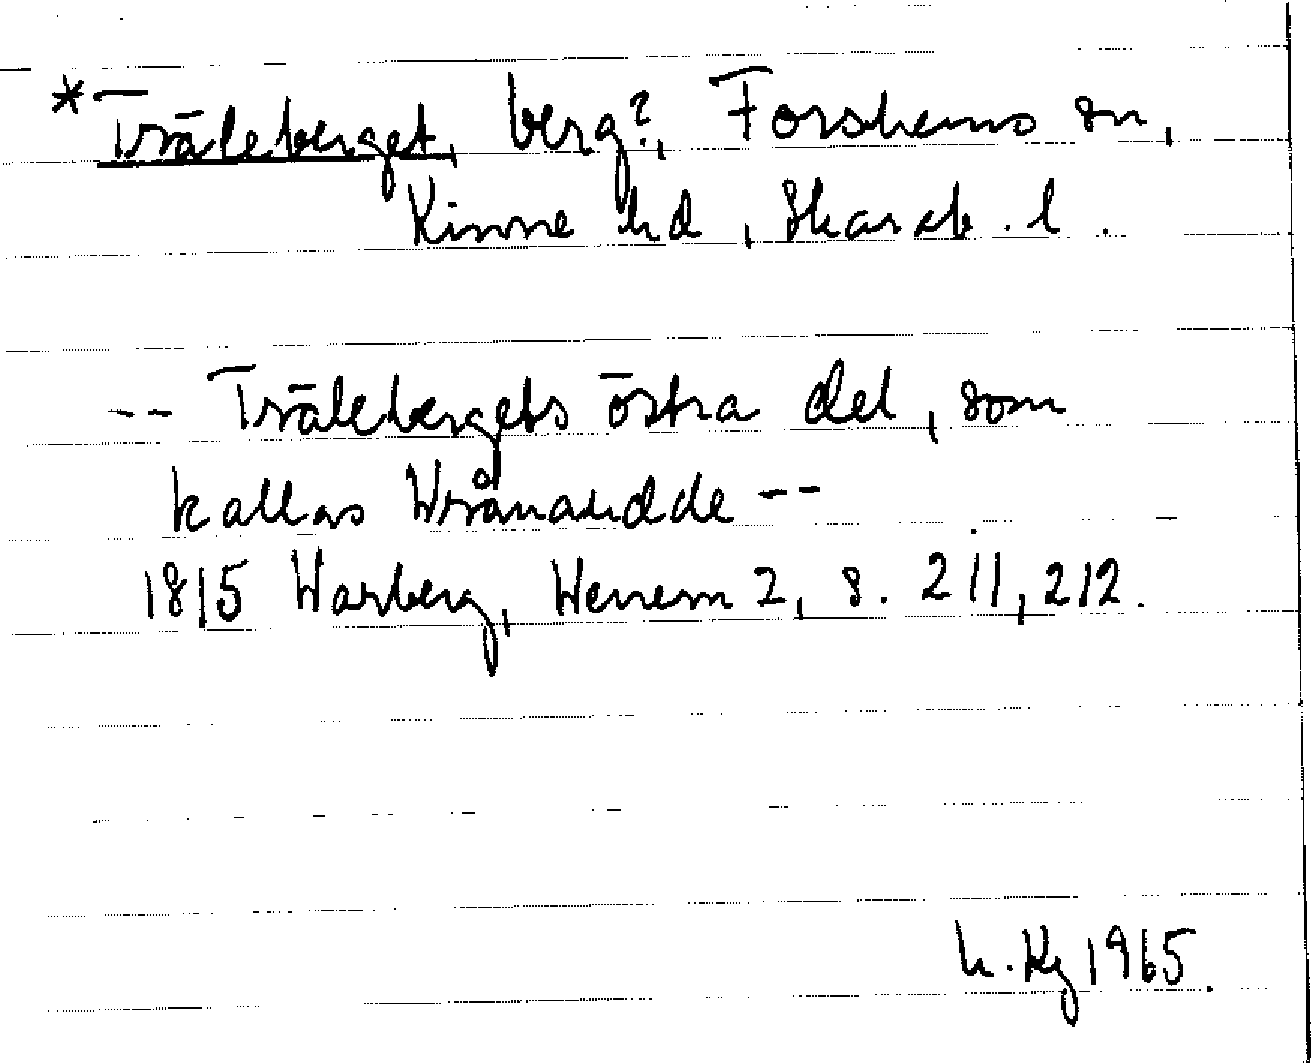 *Träleberget, berg?, Forshems sn,
Kinne hd, Skarab. l.
-- Trälebergets östra del, som
kallas Wrånaudde --
1815 Warberg, Wenern 2, s. 211, 212.
h. Kg 1965.